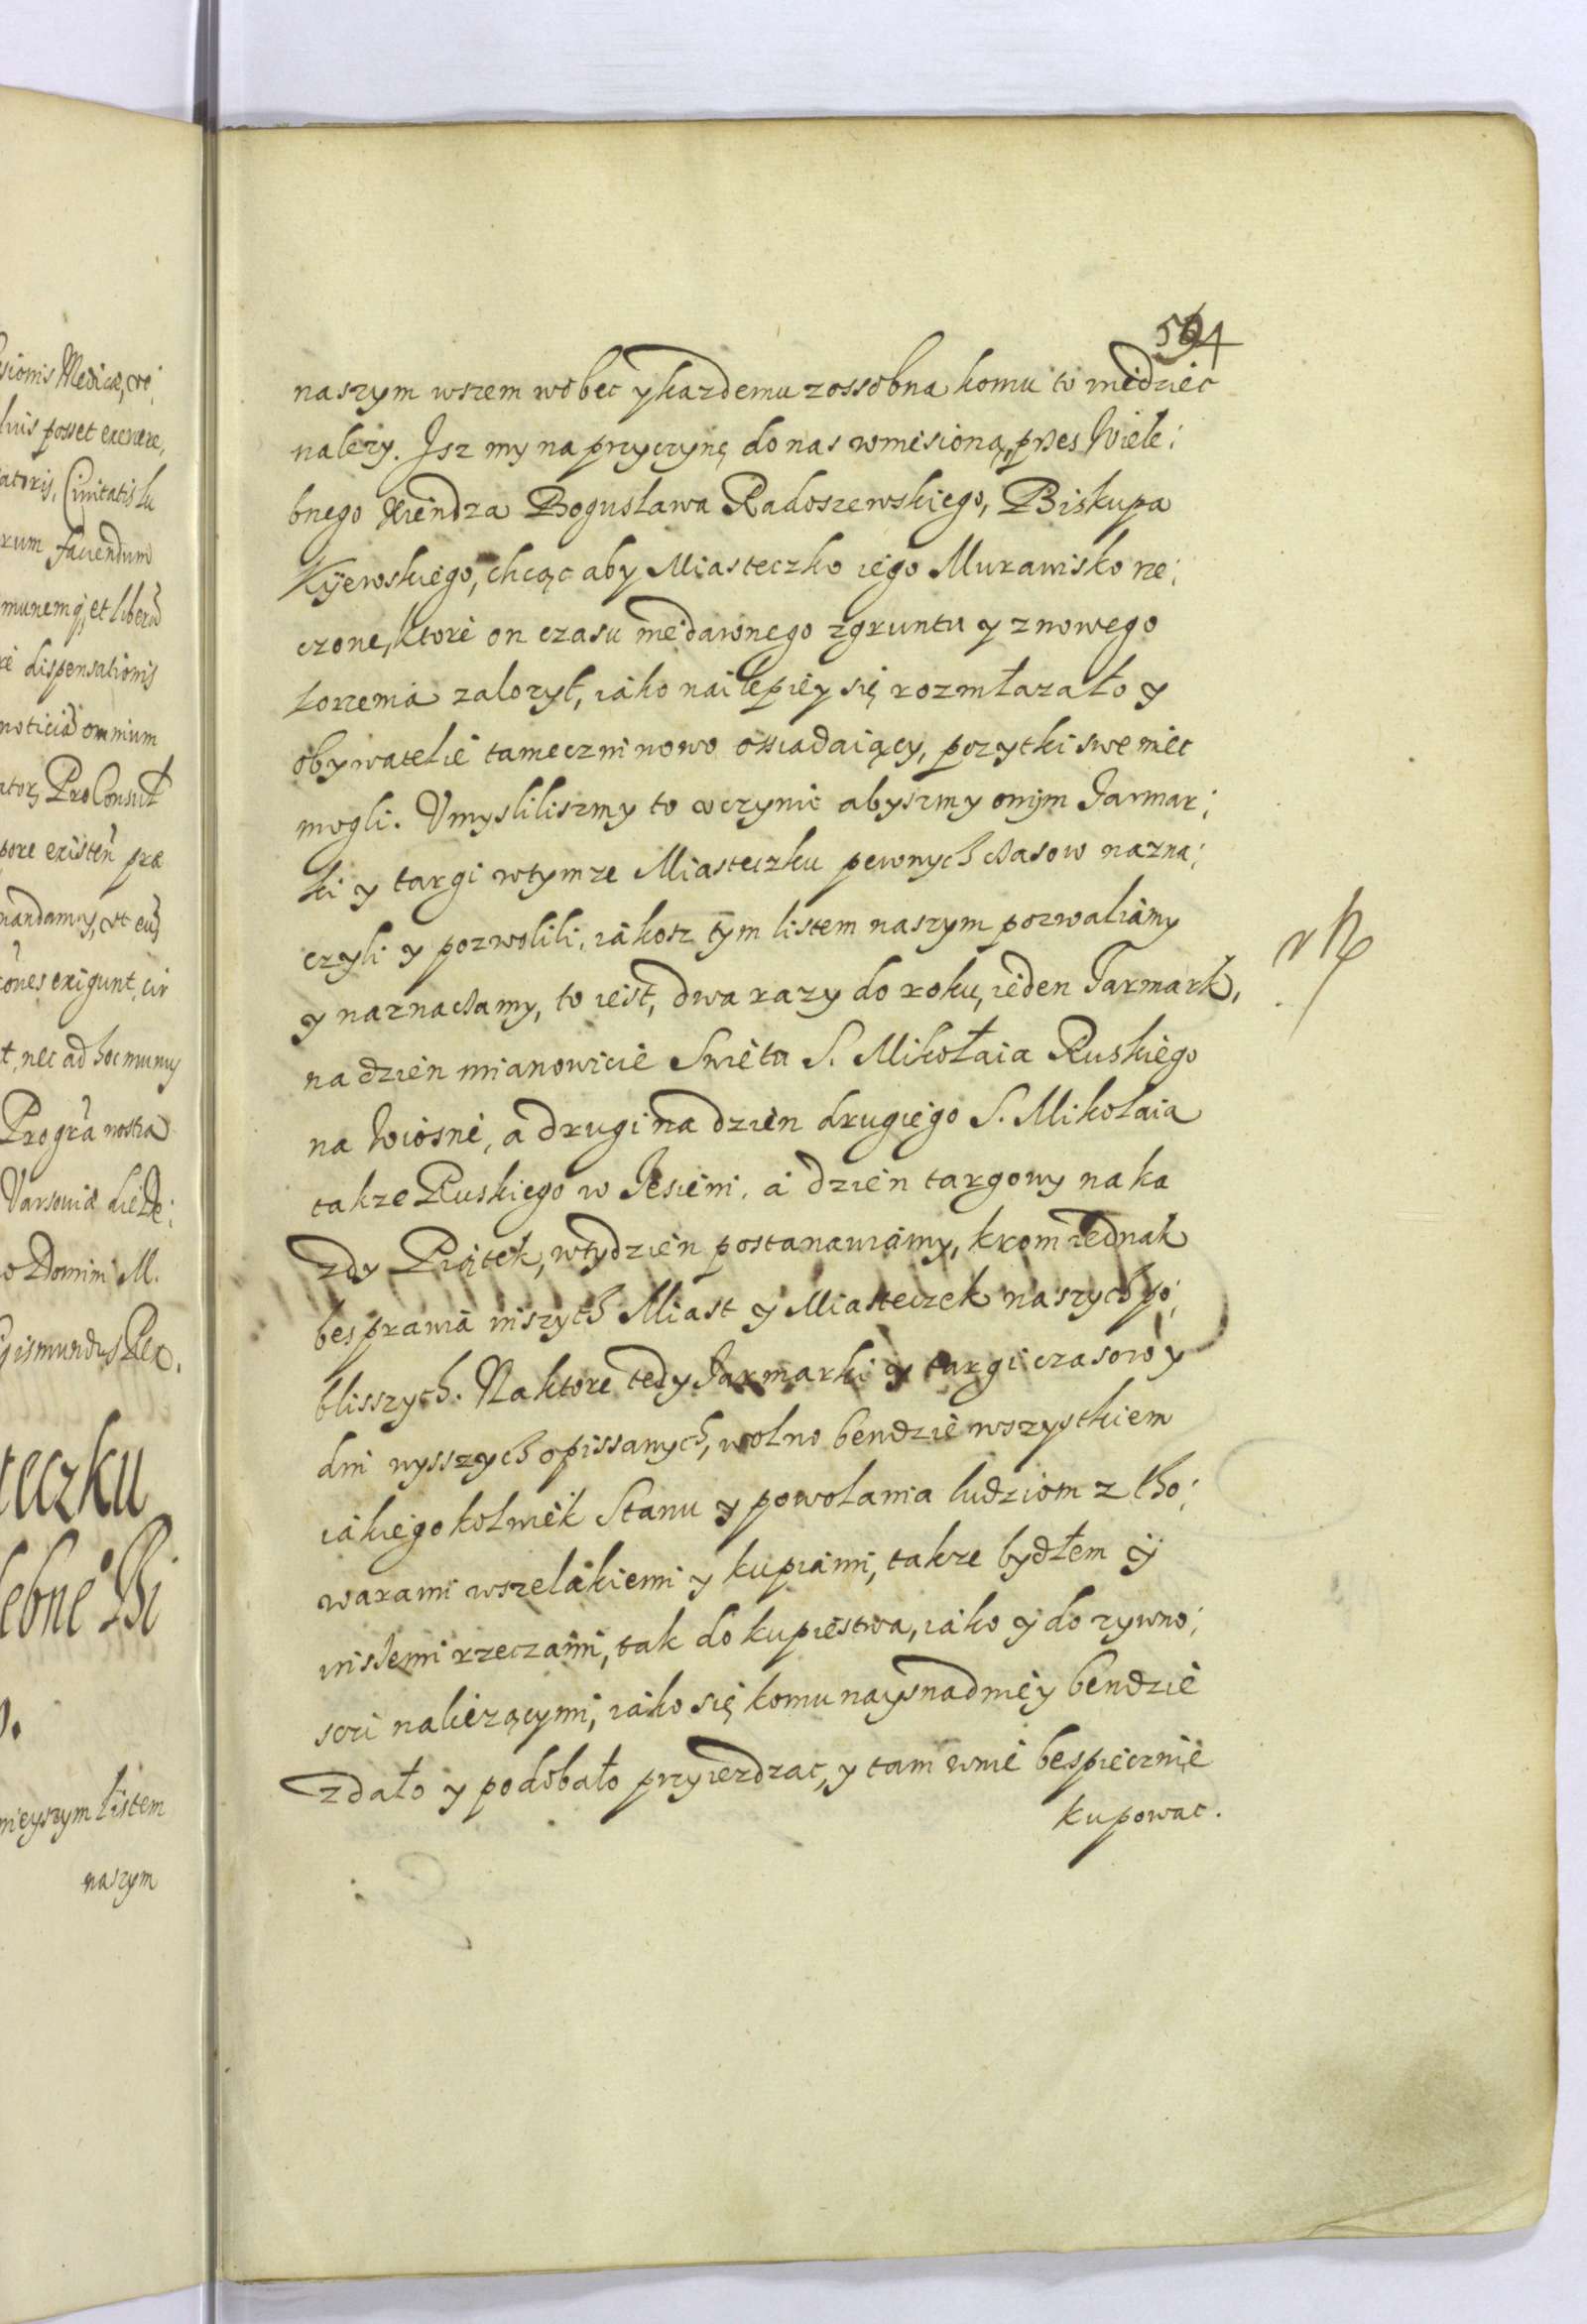 sionis Medicæ, ve;
luis posset exercere,
atoris, Civitatis lu
rum faciendum
munemq; et liberã
re dispensationis
noticiã omnium
ator, ProConsul
pore existen̄ præ
mandamus, vt eus
ões exigunt, cir
t, nec ad hoc munus
Progr̃a nostra
Varsoviæ die De;
o Domini M.
gismundus Rex.
teczku
lebne Bi
nieyszym listem
naszym
504
naszym wszem wobec y kazdemu zossobna komu to wiedziec
nalezy. Jsz my na przyczynę do nas wniesioną, przes Wiele;
bnego Xiendza Bogusława Radoszewskiego, Biskupa
Kijewskiego, chcąc aby Miasteczko iego Murawisko rze;
czone, ktore on czasu niedawnego zgruntu y znowego
korzenia zalozył, iako nailepiey się rozmłazało y
obywatelie tameczni nowo ossiadaiący, pozytki swe miec
mogli. Vmysliliszmy to vczynic abyszmy onym Jarmar;
ki y targi wtymze Miasteczku pewnych czasow nazna;
czyli y pozwolili, iakosz tym listem naszym pozwaliamy
y naznaczamy, to iest, dwa razy do roku, ieden Jarmark,
na dzien mianowicie Swięta S. Mikołaia Ruskiego
na Wiosnę, a drugi na dzien drugiego S. Mikolaia
takze Ruskiego w Jesieni, a dzien targowy na ka
zdy Piątek, wtydzien postanawiamy, krom iednak
bes prawia inszych Miast y Miasteczek naszych po;
blisszych. Na ktore tedy Jarmarki y targi czasow y
dni wysszych opissanych, wolno bendzie wszystkiem
iakiegokolwiek Stanu y powolania ludziom z tho;
warami wszelakiemi y kupiami, takze bydłem y
inszemi rzeczami, tak do kupiestwa, iako y do zywno;
sczi naliezącymi, iako się komu naysnadniey bendzie
zdało y podobało przyiezdzac, y tam wnie bespiecznie
kupowac.